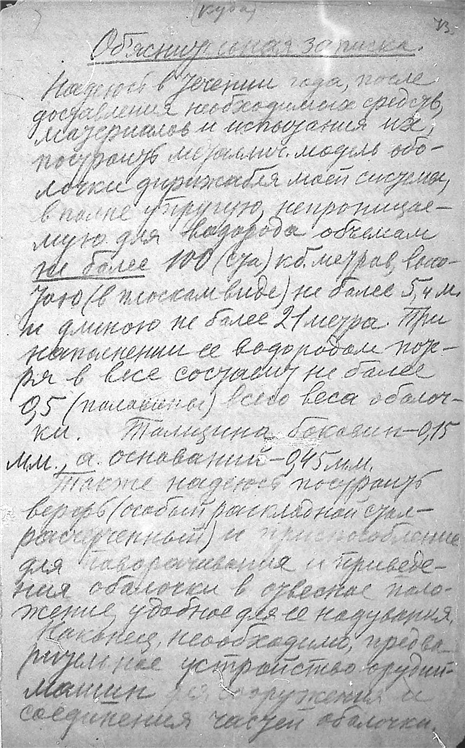 (куда)
73.
Объяснительная записка.
Надеюсь в течении года, после
доставления необходимых средств,
материалов и испытания их,
построить металлич. модель обо-
лочки дирижабля моей системы,
вполне упругую, непроницае-
мую для водорода объемом
не более 100 (ста) кб. метров, высо-
тою (в плоском виде) не более 5,4 м.
и длиною не более 21 метра. При
наполнении ее водородом поте-
ря в весе составит не более
0,5 (половины) всего веса оболоч-
ки. Толщина боковин – 0,15
мм., а оснований – 0,45 мм.
Также надеюсь построить
верфь (особый раскладной стол –
расчерченный) и приспособление
для поворачивания и приведе-
ния оболочки в отвесное поло-
жение, удобное для ее надувания.
Наконец, необходимо, предва-
рительное устройство орудий –
машин для сооружения и
соединения частей оболочки.